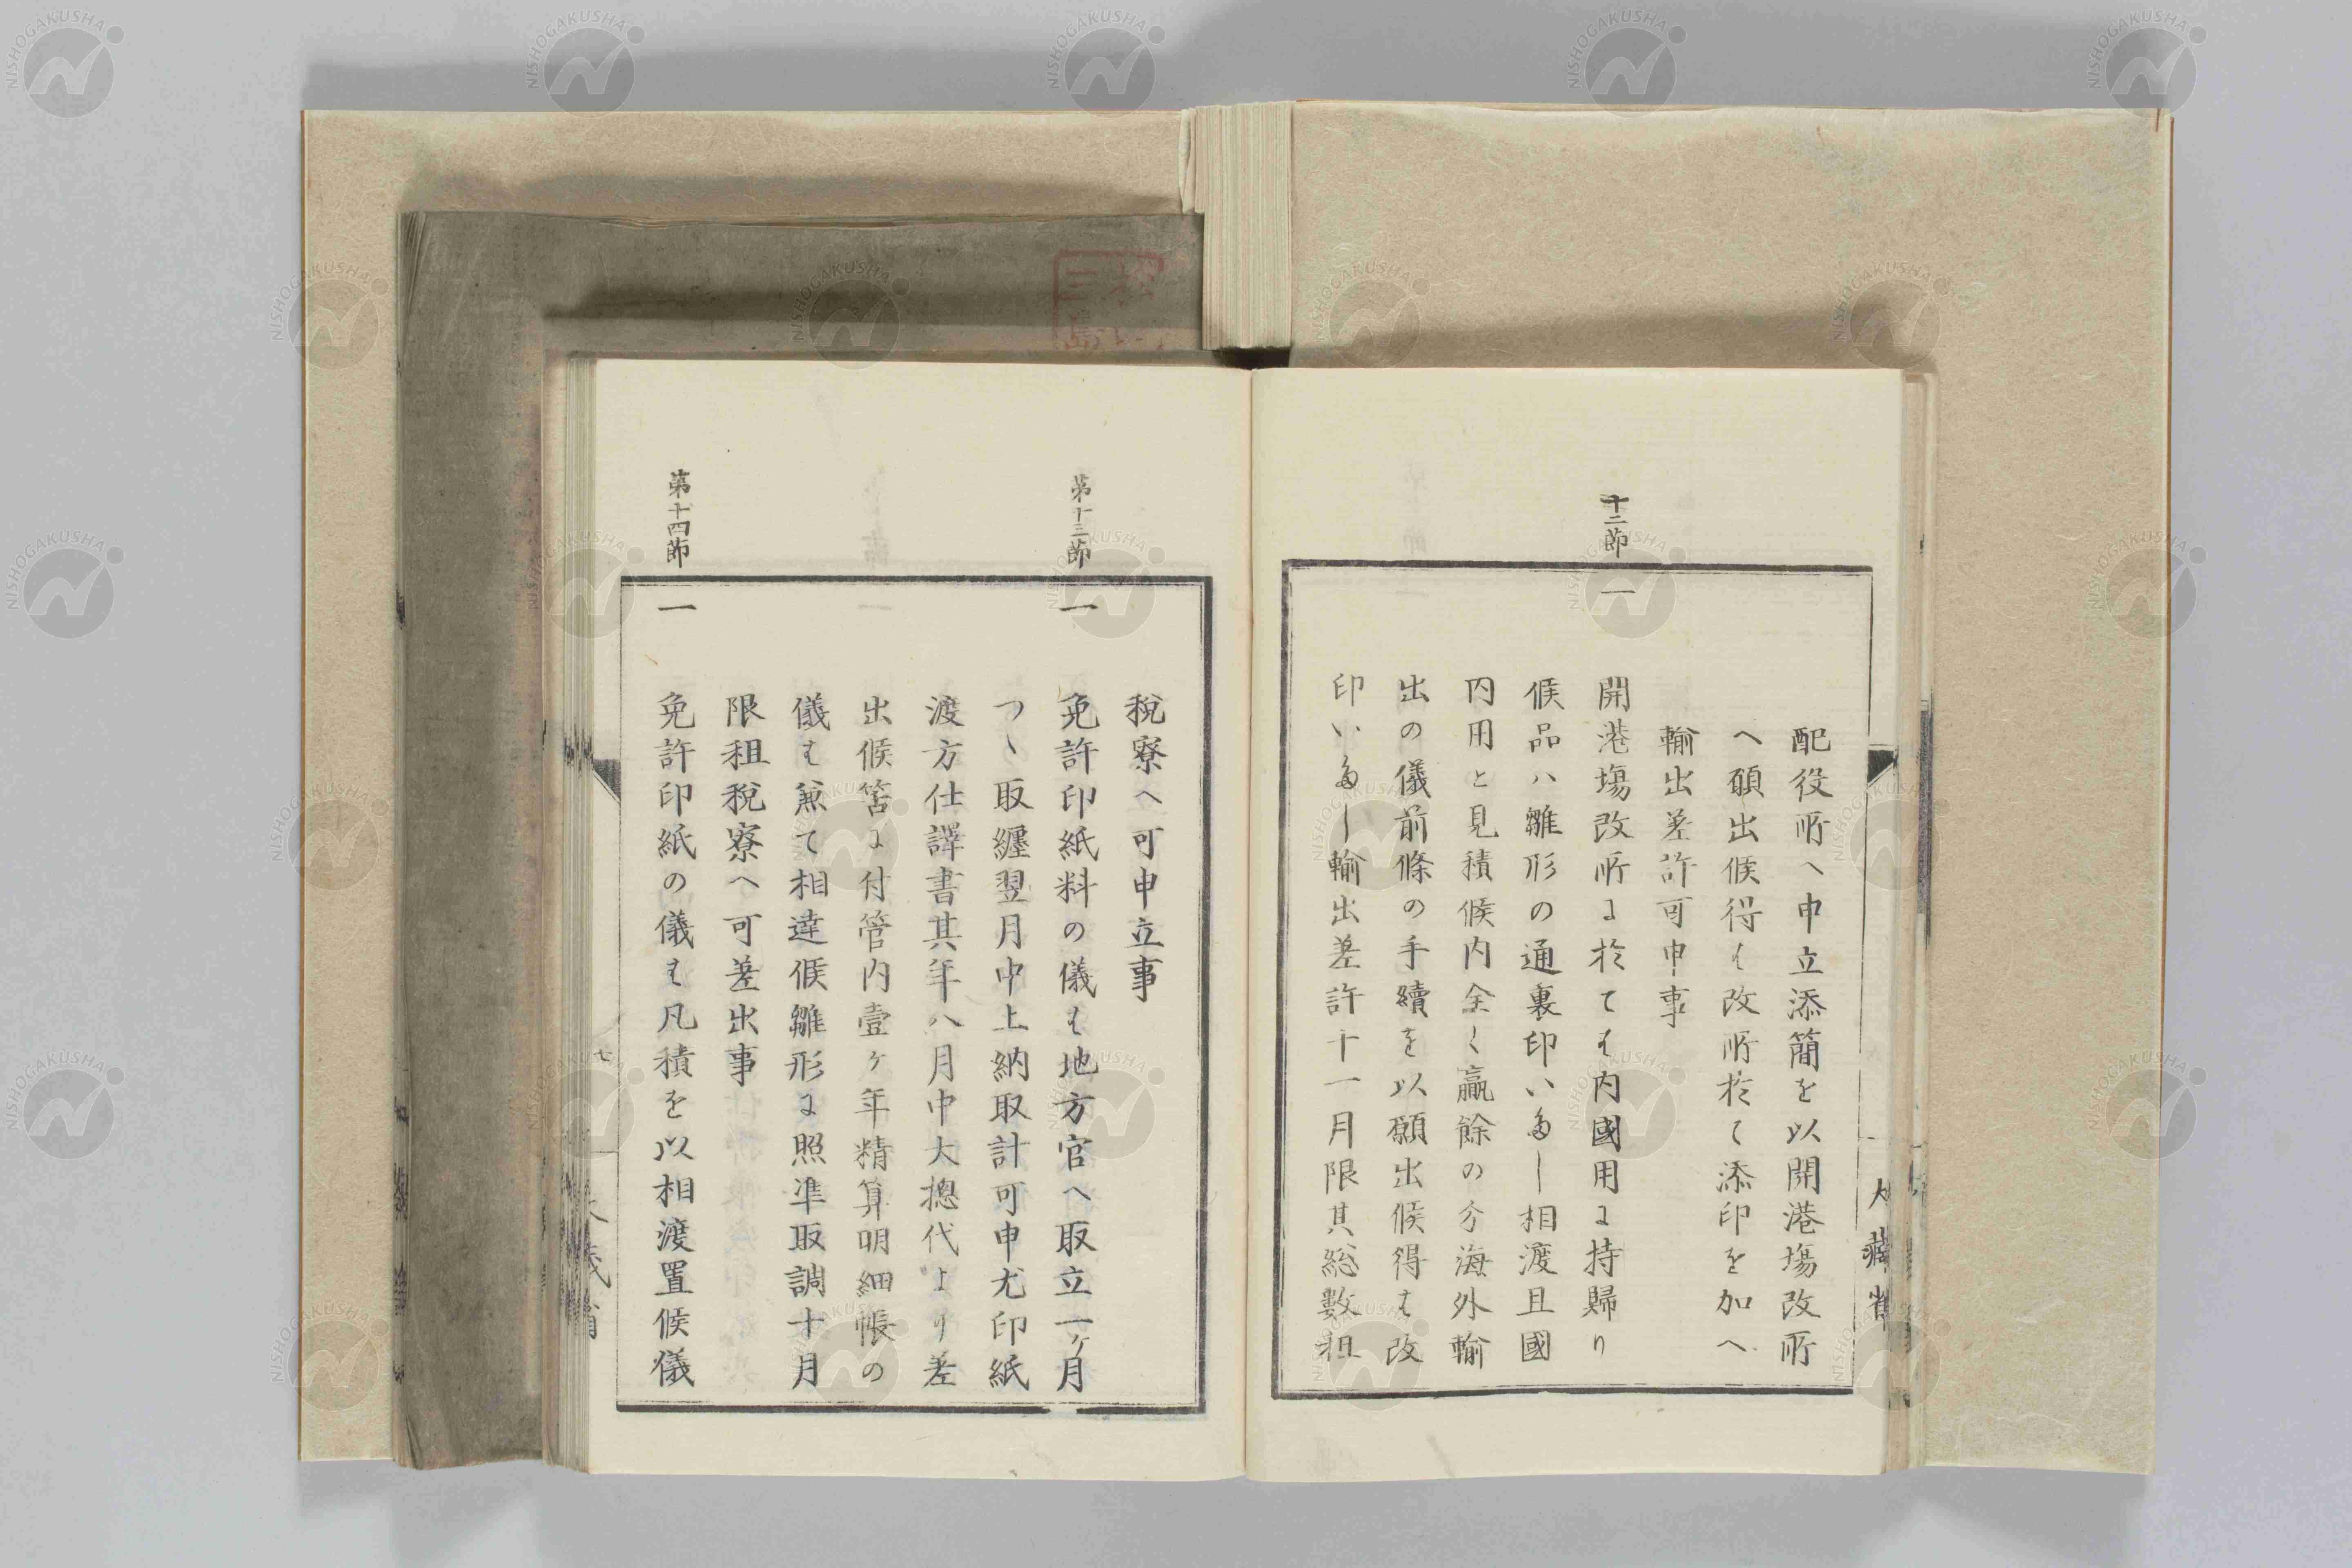 配役所へ申立添簡を以開港塲改所
へ願出候得ハ改所於て添印を加へ
輸出差許可申事
十二節
一
開港塲改所ニ於てハ内國用ニ持歸り
候品ハ雛形の通裏印いたし相渡且國
内用と見積候内全く贏餘の分海外輸
出の儀前條の手續を以願出候得ハ改
印いたし輸出差許十一月限其総數租
大藏省
税寮へ可申立事
第十三節
一
免許印紙料の儀ハ地方官へ取立一ヶ月
つゝ取纏翌月中上納取計可申尤印紙
渡方仕譯書其年八月中大摠代より差
出候筈ニ付管内壹ヶ年精算明細帳の
儀ハ兼て相達候雛形ニ照準取調十月
限租税寮へ可差出事
第十四節
一
免許印紙の儀ハ凡積を以相渡置候儀
七
NISHOGAKUSHA